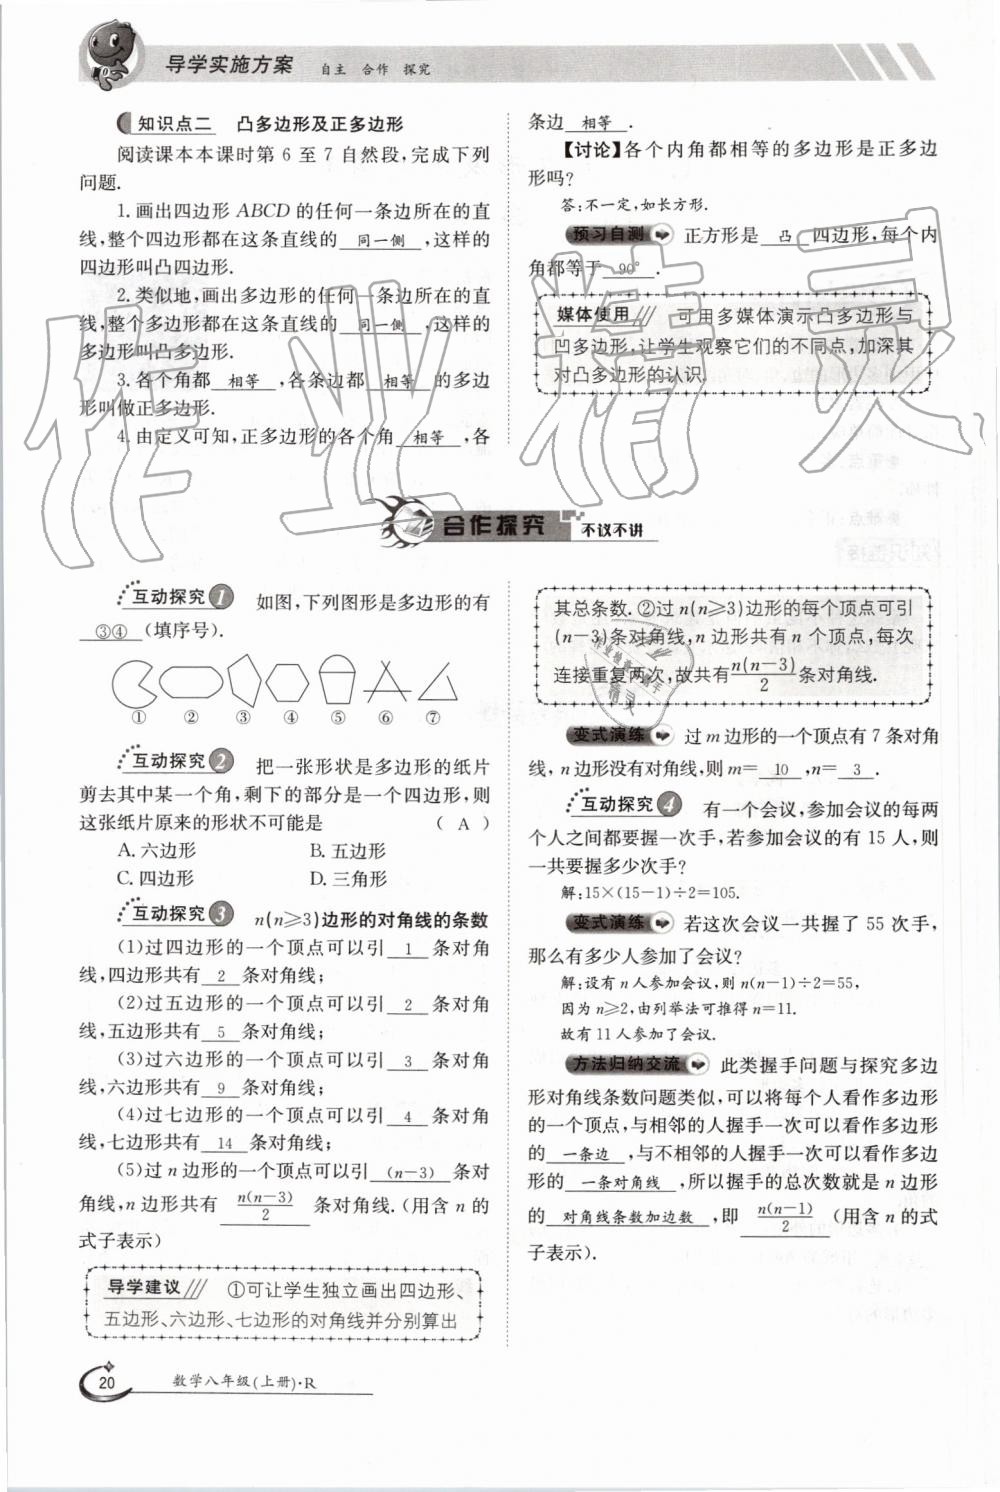 导学实施方案 自主 合作 探究
知识点二 凸多边形及正多边形
阅读课本本课时第 6 至 7 自然段,完成下列
问题.
1.画出四边形 ABCD 的任何一条边所在的直
线,整个四边形都在这条直线的 同一侧 ,这样的
四边形叫凸四边形.
2.类似地,画出多边形的任何一条边所在的直
线,整个多边形都在这条直线的 同一侧 ,这样的
多边形叫凸多边形.
3.各个角都 相等 ,各条边都 相等 的多边
形叫做正多边形.
4.由定义可知,正多边形的各个角 相等 ,各
条边 相等 .
【讨论】各个内角都相等的多边形是正多边
形吗?
答:不一定,如长方形.
预习自测 正方形是 凸 四边形,每个内
角都等于 90° .
媒体使用 可用多媒体演示凸多边形与
凹多边形,让学生观察它们的不同点,加深其
对凸多边形的认识.
合作探究 不议不讲
互动探究1 如图,下列图形是多边形的有
③④ (填序号).
① ② ③ ④ ⑤ ⑥ ⑦
互动探究2 把一张形状是多边形的纸片
剪去其中某一个角,剩下的部分是一个四边形,则
这张纸片原来的形状不可能是 ( A )
A.六边形 B.五边形
C.四边形 D.三角形
互动探究3 n(n≥3)边形的对角线的条数
(1)过四边形的一个顶点可以引 1 条对角
线,四边形共有 2 条对角线;
(2)过五边形的一个顶点可以引 2 条对角
线,五边形共有 5 条对角线;
(3)过六边形的一个顶点可以引 3 条对角
线,六边形共有 9 条对角线;
(4)过七边形的一个顶点可以引 4 条对角
线,七边形共有 14 条对角线;
(5)过 n 边形的一个顶点可以引 (n-3) 条对
角线,n 边形共有 n(n-3)/2 条对角线.(用含 n 的
式子表示)
导学建议 ①可让学生独立画出四边形、
五边形、六边形、七边形的对角线并分别算出
其总条数.②过 n(n≥3)边形的每个顶点可引
(n-3)条对角线,n 边形共有 n 个顶点,每次
连接重复两次,故共有n(n-3)/2条对角线.
变式演练 过 m 边形的一个顶点有 7 条对角
线, n 边形没有对角线,则 m= 10 ,n= 3 .
互动探究4 有一个会议,参加会议的每两
个人之间都要握一次手,若参加会议的有 15 人,则
一共要握多少次手?
解:15×(15-1)÷2=105.
变式演练 若这次会议一共握了 55 次手,
那么有多少人参加了会议?
解:设有 n 人参加会议,则 n(n-1)÷2=55,
因为 n≥2,由列举法可推得 n=11.
故有 11 人参加了会议.
方法归纳交流 此类握手问题与探究多边
形对角线条数问题类似,可以将每个人看作多边形
的一个顶点,与相邻的人握手一次可以看作多边形
的 一条边 ,与不相邻的人握手一次可以看作多边
形的 一条对角线 ,所以握手的总次数就是 n 边形
的 对角线条数加边数 ,即 n(n-1)/2 (用含 n 的式
子表示).
20 数学八年级(上册)·R
作业精灵